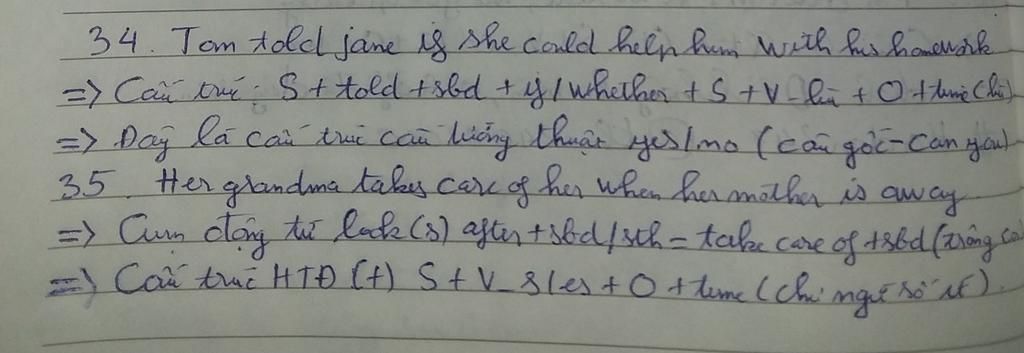 34. Tom told jane if she could help him with his homework
=> Cấu trúc: S + told + sbd + if/whether + S + V_lùi + O + time (chỉ)
=> Đây là cấu trúc câu tường thuật yes/no (câu gốc - can you)
35. Her grandma takes care of her when her mother is away
=> Cụm động từ look(s) after + sbd/sth = take care of + sbd (trông co
=> Cấu trúc HTĐ (+) S + V_s/es + O + time (chủ ngữ số ít).